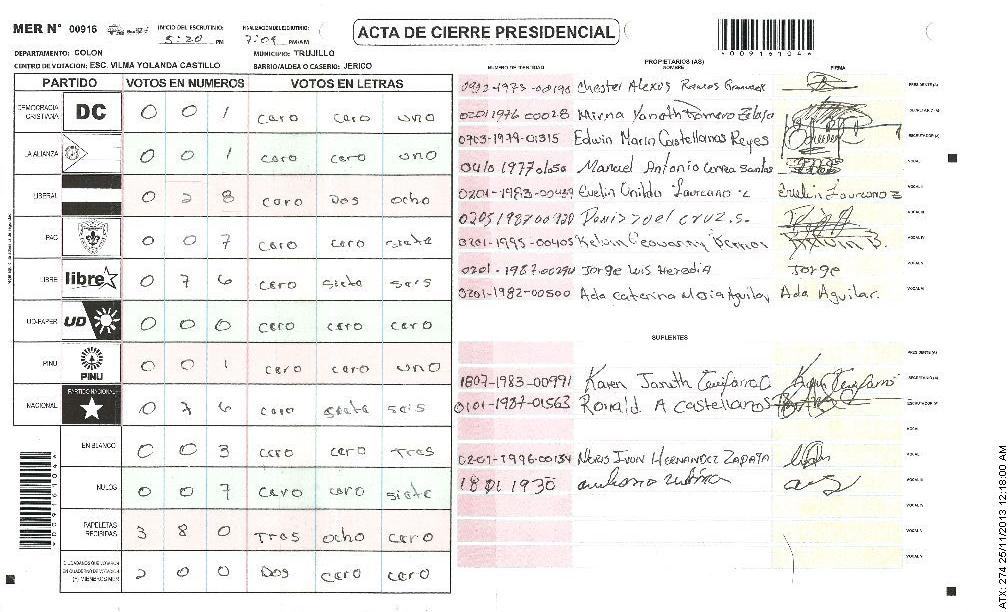 MER N° 00916
INICIO DEL ESCRUTINIO: 5:20 PM
FINALIZACION DEL ESCRUTINIO: 7:09 PM/AM
ACTA DE CIERRE PRESIDENCIAL
009161046
DEPARTAMENTO: COLON
MUNICIPIO: TRUJILLO
CENTRO DE VOTACION: ESC. VILMA YOLANDA CASTILLO
BARRIO/ALDEA O CASERIO: JERICO
PARTIDO VOTOS EN NUMEROS VOTOS EN LETRAS
DEMOCRACIA CRISTIANA DC 0 0 1 cero cero uno
LA ALIANZA 0 0 1 cero cero uno
LIBERAL 0 2 8 cero Dos ocho
PAC 0 0 7 cero cero siete
LIBRE libre 0 7 6 cero siete seis
UD-FAPER UD 0 0 0 cero cero cero
PINU PINU 0 0 1 cero cero uno
NACIONAL PARTIDO NACIONAL 0 7 6 cero siete seis
EN BLANCO 0 0 3 cero cero Tres
NULOS 0 0 7 cero cero siete
PAPELETAS RECIBIDAS 3 8 0 Tres ocho cero
CIUDADANOS QUE VOTARON EN CUADERNO DE VOTACION (+) MIEMBROS MER 2 0 0 Dos cero cero
PROPIETARIOS (AS)
NUMERO DE IDENTIDAD NOMBRE FIRMA
Chester Alexis Ramos PRESIDENTE (A)
0201 1976 00028 Mirna Yanoth Romero
0703-1979-01315 Edwin Mario Castellanos Reyes
Manuel Antonio Correa Santos VOCAL I
0201-1983-00439 Evelin Unilda Laureano Z Evelin Laureano Z VOCAL II
Denis Joel Cruz. S.
0201-1995-00405 Kelvin Geovanny Kelvin B. VOCAL IV
Jorge Luis Heredia Jorge VOCAL V
0201-1982-00500 Ada Caterina Aguilar Ada Aguilar. VOCAL VI
SUPLENTES
PRESIDENTE (A)
1807-1983-00991 Karen Janeth SECRETARIO (A)
0101-1987-01563 Ronald A Castellanos ESCRUTADOR (A)
VOCAL I
0201-1996-00134 Neris Ivon Hernandez Zapata VOCAL II
18 01 1930 VOCAL III
VOCAL IV
VOCAL V
VOCAL VI
ATX: 274 25/11/2013 12:18:00 AM